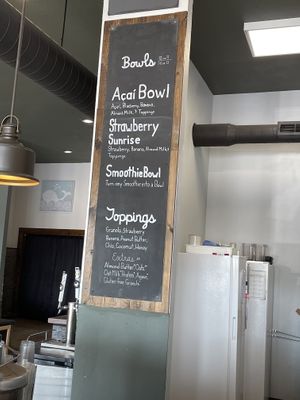 Bowls
Açaí Bowl
Açaí, Blueberry, Banana,
Almond Milk, & Toppings
Strawberry
Sunrise
Strawberry, Banana, Almond Milk &
Toppings
Smoothie Bowl
Turn any Smoothie into a Bowl
Toppings
Granola, Strawberry
Banana, Peanut Butter,
Chia, Coconut, Honey
Extras
Almond Butter
Oat Milk
Gluten free Granola